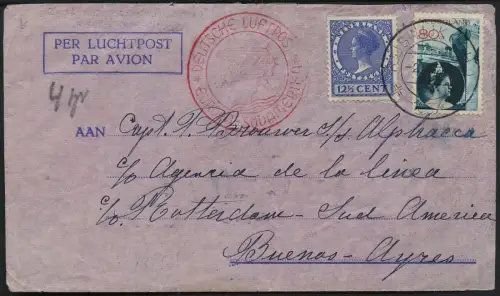 PER LUCHTPOST
PAR AVION
DEUTSCHE LUFTPOST
SÜDAMERIKA
12½ CENT
80
4 gr
AAN Capt. P. Brouwer s/s Alphacca
c/o Agencia de la linea
c/o Rotterdam - Sud America
Buenos-Ayres